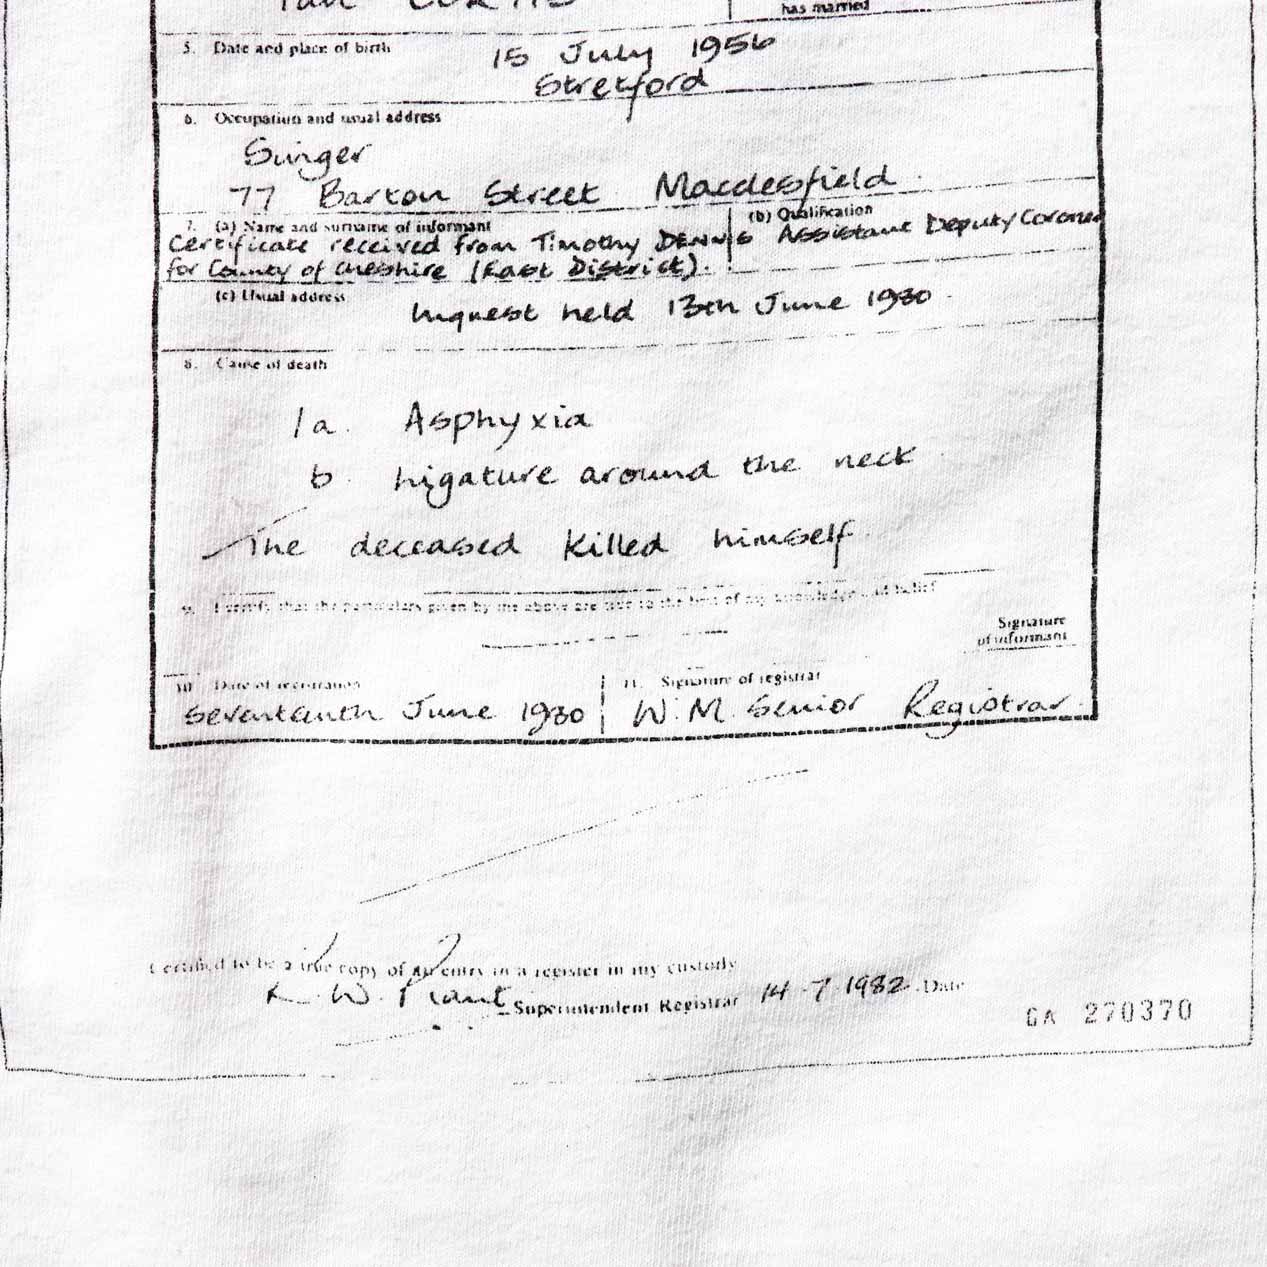 Ian CURTIS
has married
5. Date and place of birth
15 July 1956
Stretford
6. Occupation and usual address
Singer
77 Barton Street Macclesfield
7. (a) Name and surname of informant
(b) Qualification
Certificate received from Timothy DENNIS Assistant Deputy Coroner
for County of Cheshire (East District).
(c) Usual address
Inquest held 13th June 1980
8. Cause of death
1a. Asphyxia
b. Ligature around the neck
The deceased killed himself
9. I certify that the particulars given by me above are true to the best of my knowledge and belief
Signature
of informant
10. Date of registration
Seventeenth June 1980
11. Signature of registrar
W. M. Senior Registrar
Certified to be a true copy of an entry in a register in my custody
K. W. Plant Superintendent Registrar 14-7-1982. Date
GA 270370